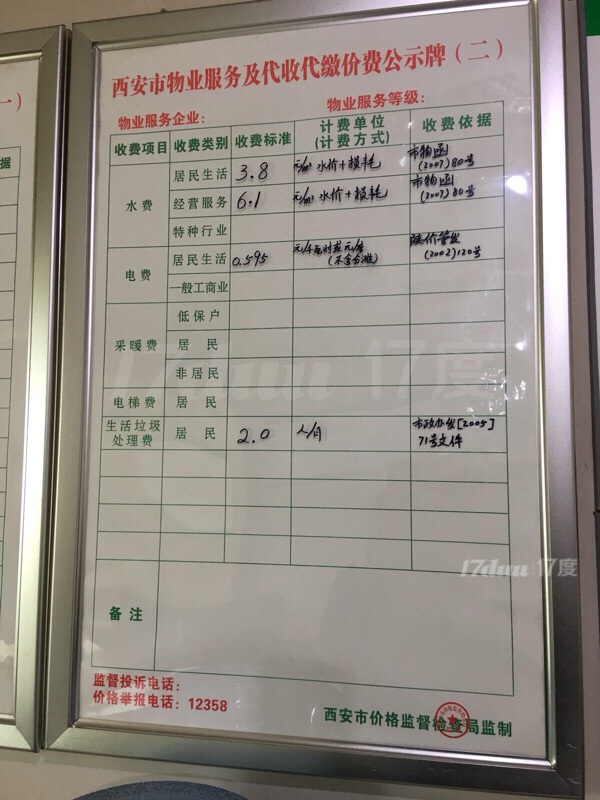 西安市物业服务及代收代缴价费公示牌（二）
物业服务企业： 物业服务等级：
收费项目 收费类别 收费标准 计费单位（计费方式） 收费依据
水费 居民生活 3.8 元/m³ 水价+损耗 市物函(2007)80号
经营服务 6.1 元/m³ 水价+损耗 市物函(2007)80号
特种行业
电费 居民生活 0.595 元/千瓦时 (不含分滩) 陕价管发(2002)120号
一般工商业
采暖费 低保户
居民
非居民
电梯费 居民
生活垃圾处理费 居民 2.0 人/月 市政办发[2005]71号文件
备注
监督投诉电话：
价格举报电话：12358
西安市价格监督检查局监制
17duu 17度
17duu 17度
一）
据